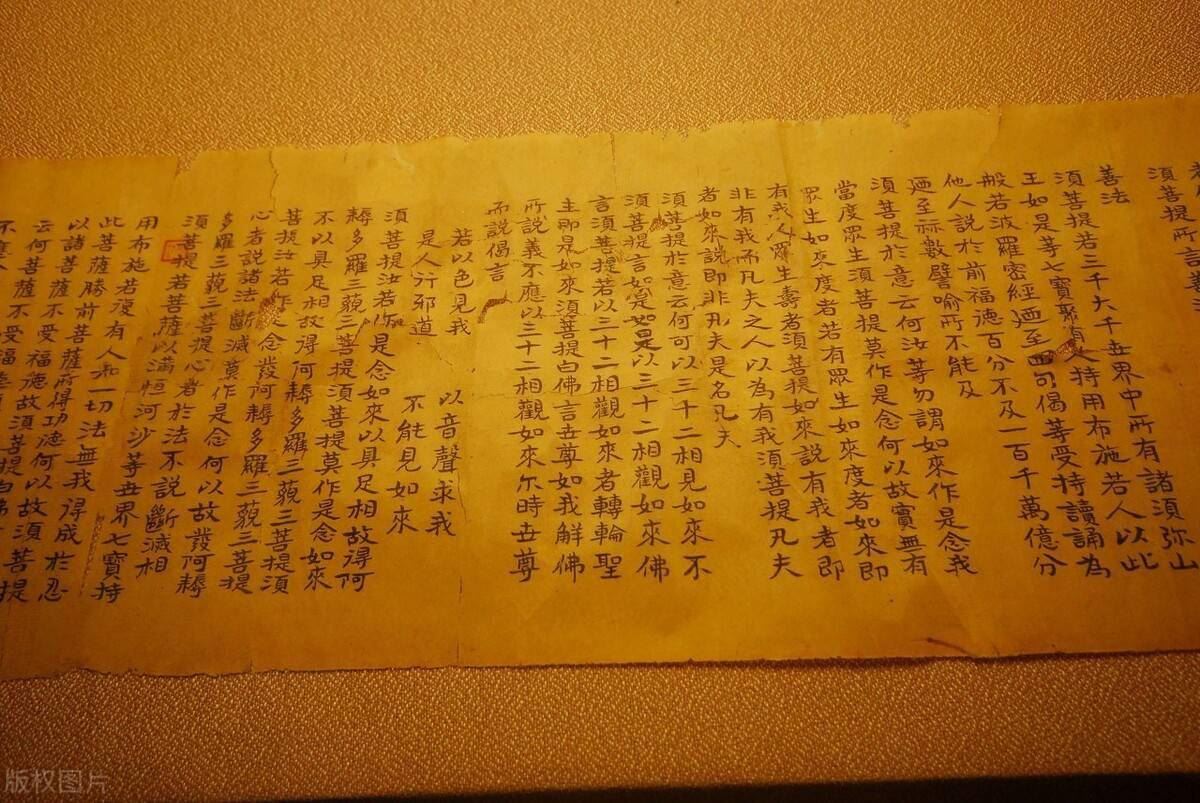 須菩提所言善
善法
須菩提若三千大千世界中所有諸須弥山
王如是等七寶聚有人持用布施若人以此
般若波羅密經迺至四句偈等受持讀誦為
他人說於前福德百分不及一百千萬億分
迺至祘數譬喻所不能及
須菩提於意云何汝等勿謂如來作是念我
當度眾生須菩提莫作是念何以故實無有
眾生如來度者若有眾生如來度者如來即
有我人眾生壽者須菩提如來說有我者即
非有我而凡夫之人以為有我須菩提凡夫
者如來說即非凡夫是名凡夫
須菩提於意云何可以三十二相見如來不
須菩提言如是如是以三十二相觀如來佛
言須菩提若以三十二相觀如來者轉輪聖
王即是如來須菩提白佛言世尊如我解佛
所說義不應以三十二相觀如來尒時世尊
而說偈言
若以色見我 以音聲求我
是人行邪道 不能見如來
須菩提汝若作是念如來以具足相故得阿
耨多羅三藐三菩提須菩提莫作是念如來
不以具足相故得阿耨多羅三藐三菩提須
菩提汝若作是念發阿耨多羅三藐三菩提
心者說諸法斷滅莫作是念何以故發阿耨
多羅三藐三菩提心者於法不說斷滅相
須菩提若菩薩以滿恒河沙等世界七寶持
用布施若復有人知一切法無我得成於忍
此菩薩勝前菩薩所得功德何以故須菩提
以諸菩薩不受福德故須菩提白佛
云何菩薩不受福德
不應
版权图片